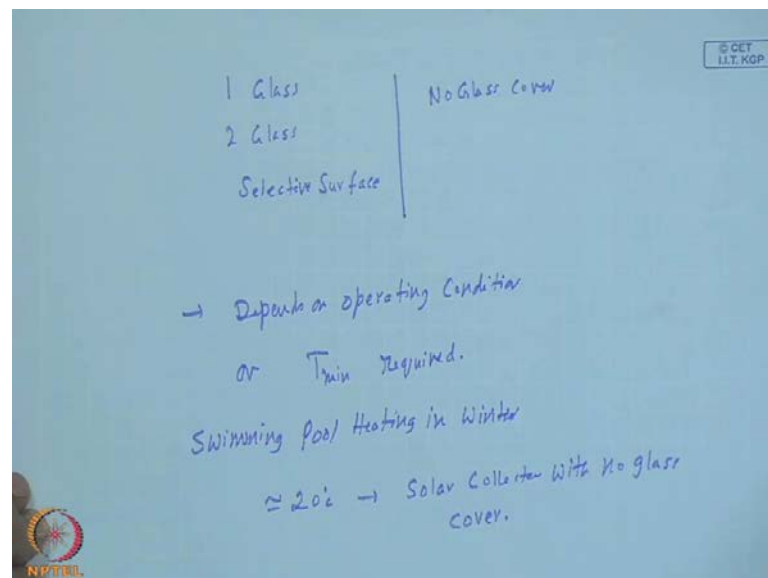 © CET
I.I.T. KGP
1 Glass
No Glass Cover
2 Glass
Selective Surface
→ Depends on operating Condition
or Tmin required.
Swimming Pool Heating in Winter
≃ 20°c → Solar Collector With no glass
cover.
NPTEL